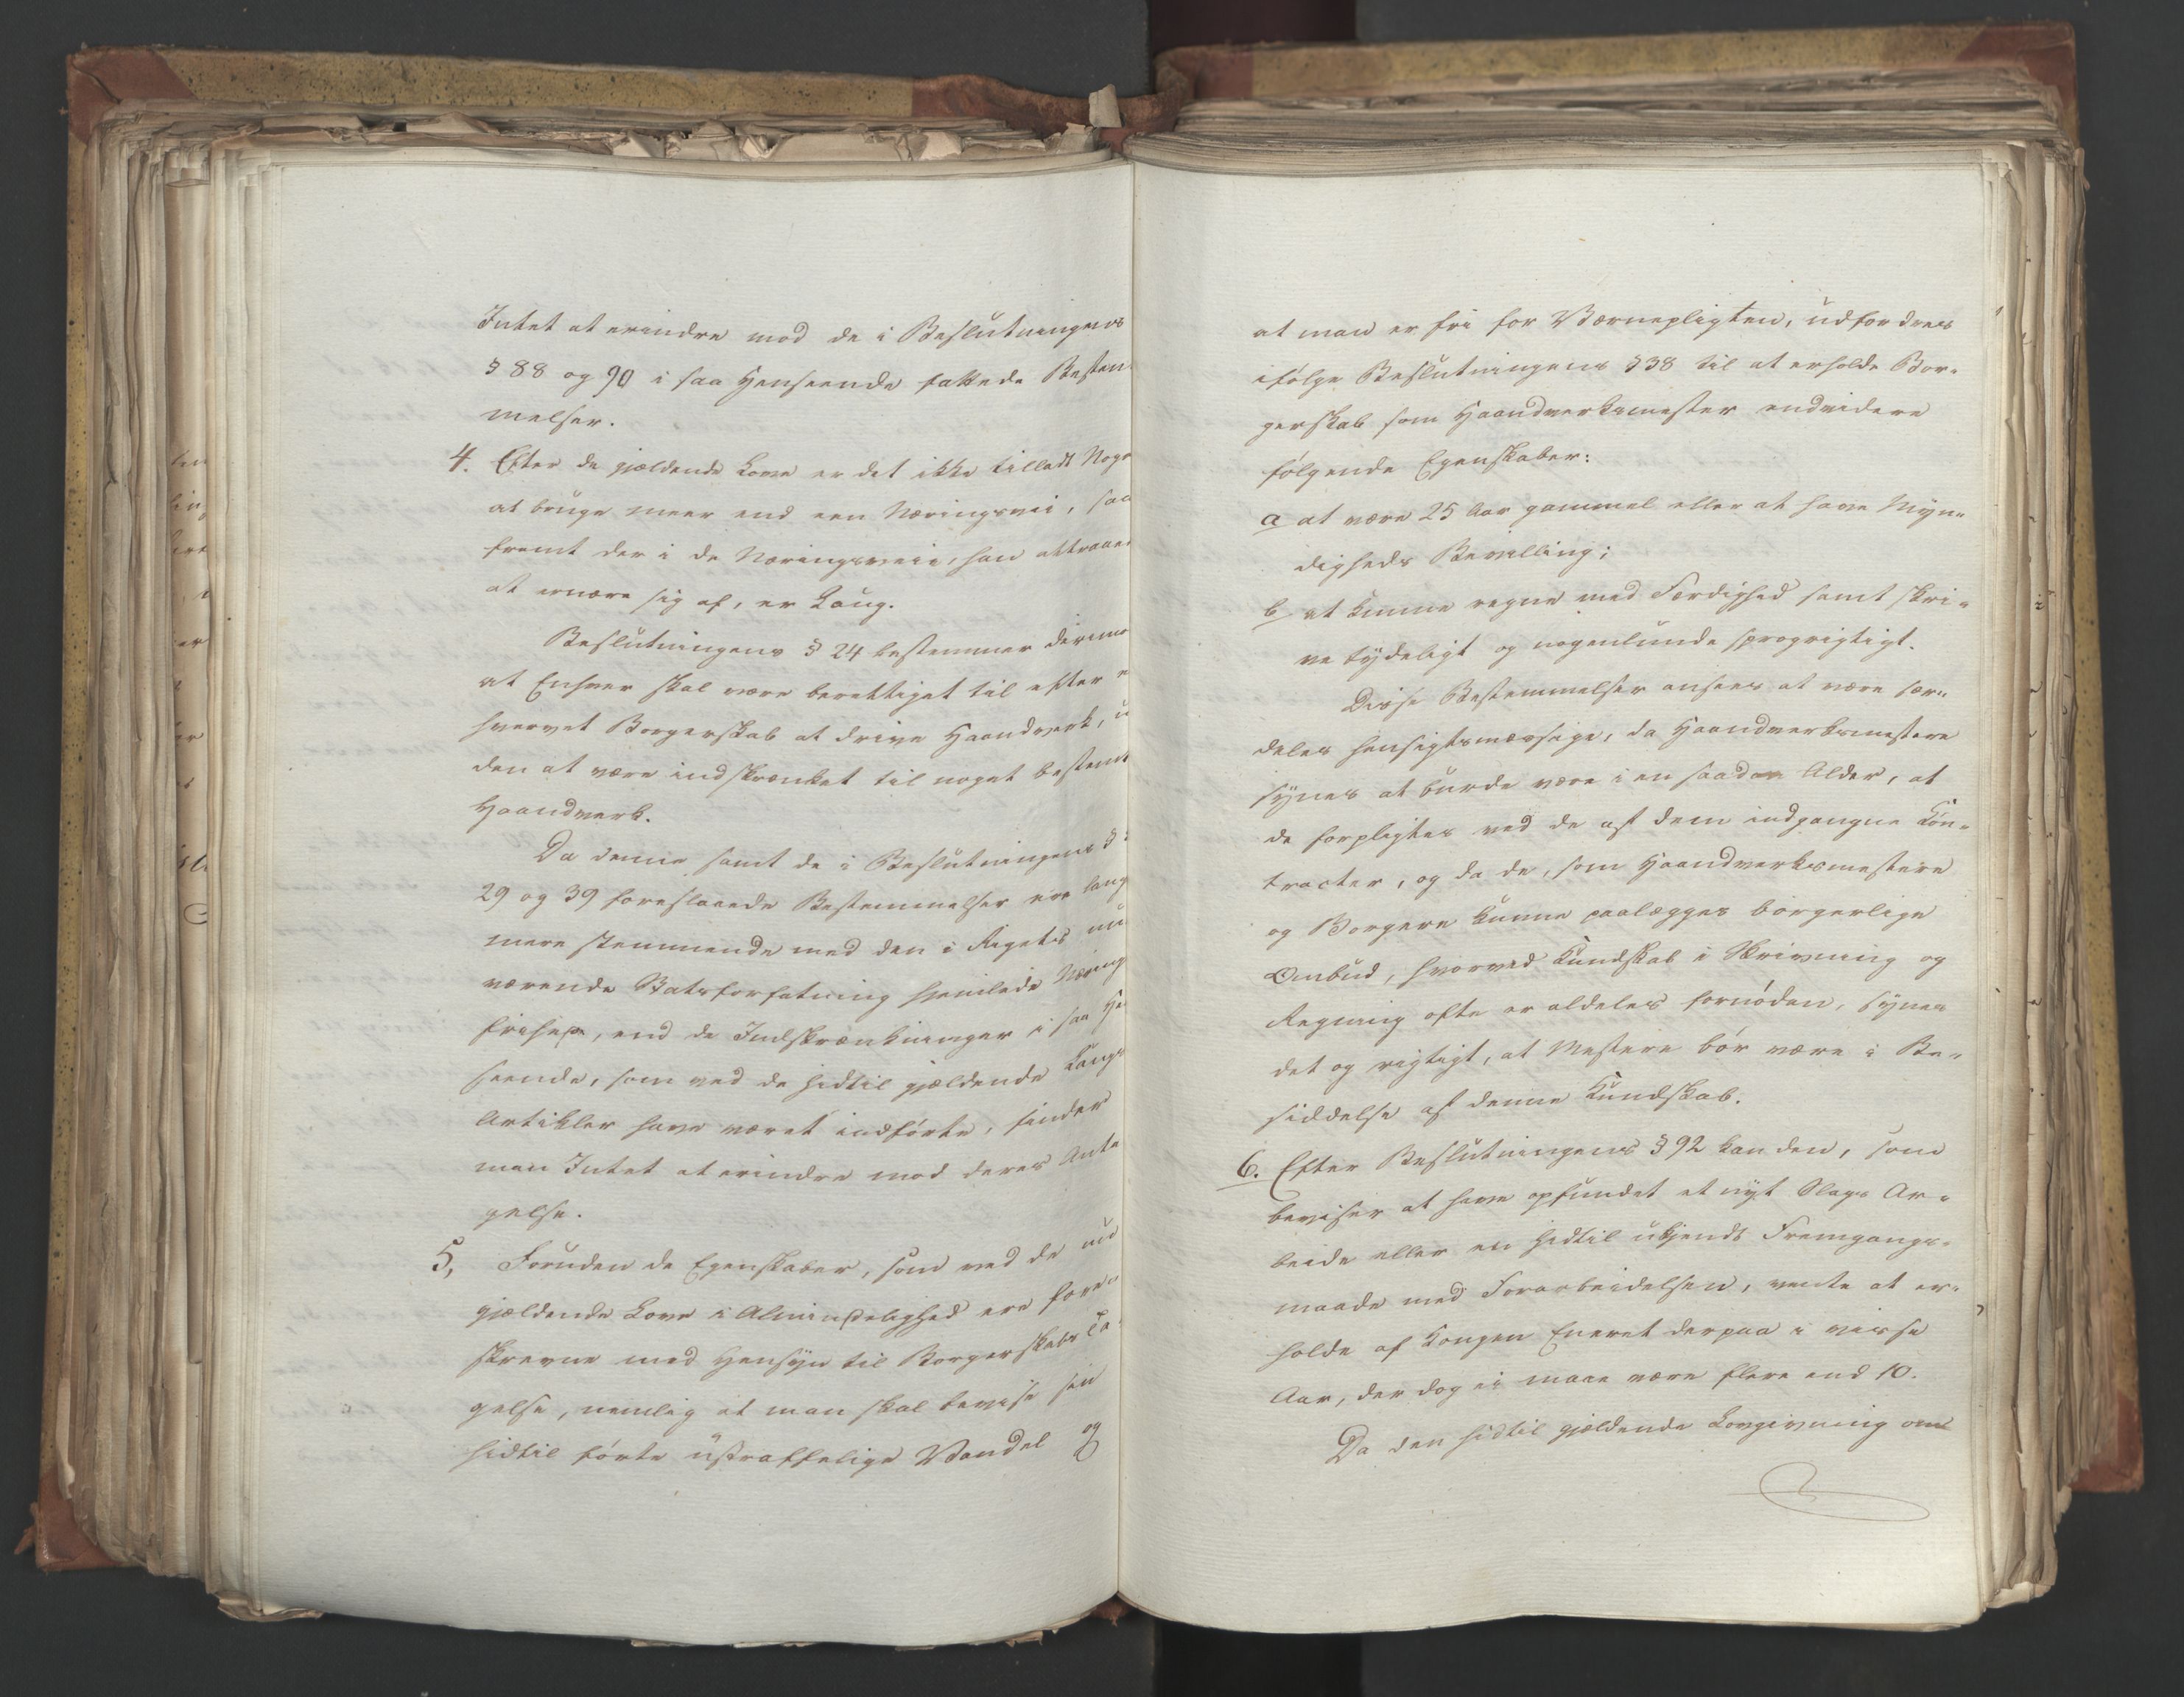 Intet at erindre mod de i Beslutningens
§ 88 og 90 i saa Henseende fattede Bestem
melser.
4. Efter de gjældende Love er det ikke tilladt Noge
at bruge meer end een Næringsvei, saa
fremt der i de Næringsveie, han attraaer
at ernære sig af, er Laug.
Beslutningens § 24 bestemmer derimo
at Enhver skal være berettiget til efter e
hvervet Borgerskab at drive Haandverk, u
den at være indskrænket til noget bestemt
Haandverk.
Da denne samt de i Beslutningens §
29 og 39 foreslaaede Bestemmelser ere lang
mere stemmende med den i Riget nu
værende Statsforfatning hjemlede Næring
frihed, end de Indskrænkninger i saa He
seende, som ved de hidtil gjældende Laugs
Artikler have været indførte, finder
man Intet at erindre mod deres Anta
gelse.
5, Foruden de Egenskaber, som ved de nu
gjældende Love i Almindelighed ere fore-
skrevne med Hensyn til Borgerskabs Ta
gelse, nemlig at man skal bevise sin
hidtil førte ustraffelige Vandel og
at man er fri for Værnepligten, udfordres
ifølge Beslutningens § 38 til at erholde Bor-
gerskab som Haandverksmester endvidere
følgende Egenskaber:
a at være 25 Aar gammel eller at have Myn-
digheds Bevilling;
b at kunne regne med Færdighed samt skri-
ve tydeligt og nogenlunde sprogrigtigt.
Disse Bestemmelser ansees at være sær-
deles hensigtsmæssige, da Haandverksmestere
synes at burde være i en saadan Alder, at
de forpligtes ved de af dem indgangne Kon-
tracter, og da de, som Haandverksmestere
og Borgere kunne paalægges borgerlige
Ombud, hvorved Kundskab i Skrivning og
Regning ofte er aldeles fornøden, synes
det og rigtigt, at Mestere bør være i Be-
siddelse af denne Kundskab.
6. Efter Beslutningens § 92 kan den, som
beviser at have opfundet et nyt Slags Ar-
beide eller en hidtil ukjendt Fremgangs-
maade med Forarbeidelsen, vente at er-
holde af Kongen Eneret derpaa i visse
Aar, der dog ei maae være flere end 10.
Da den hidtil gjældende Lovgivning om